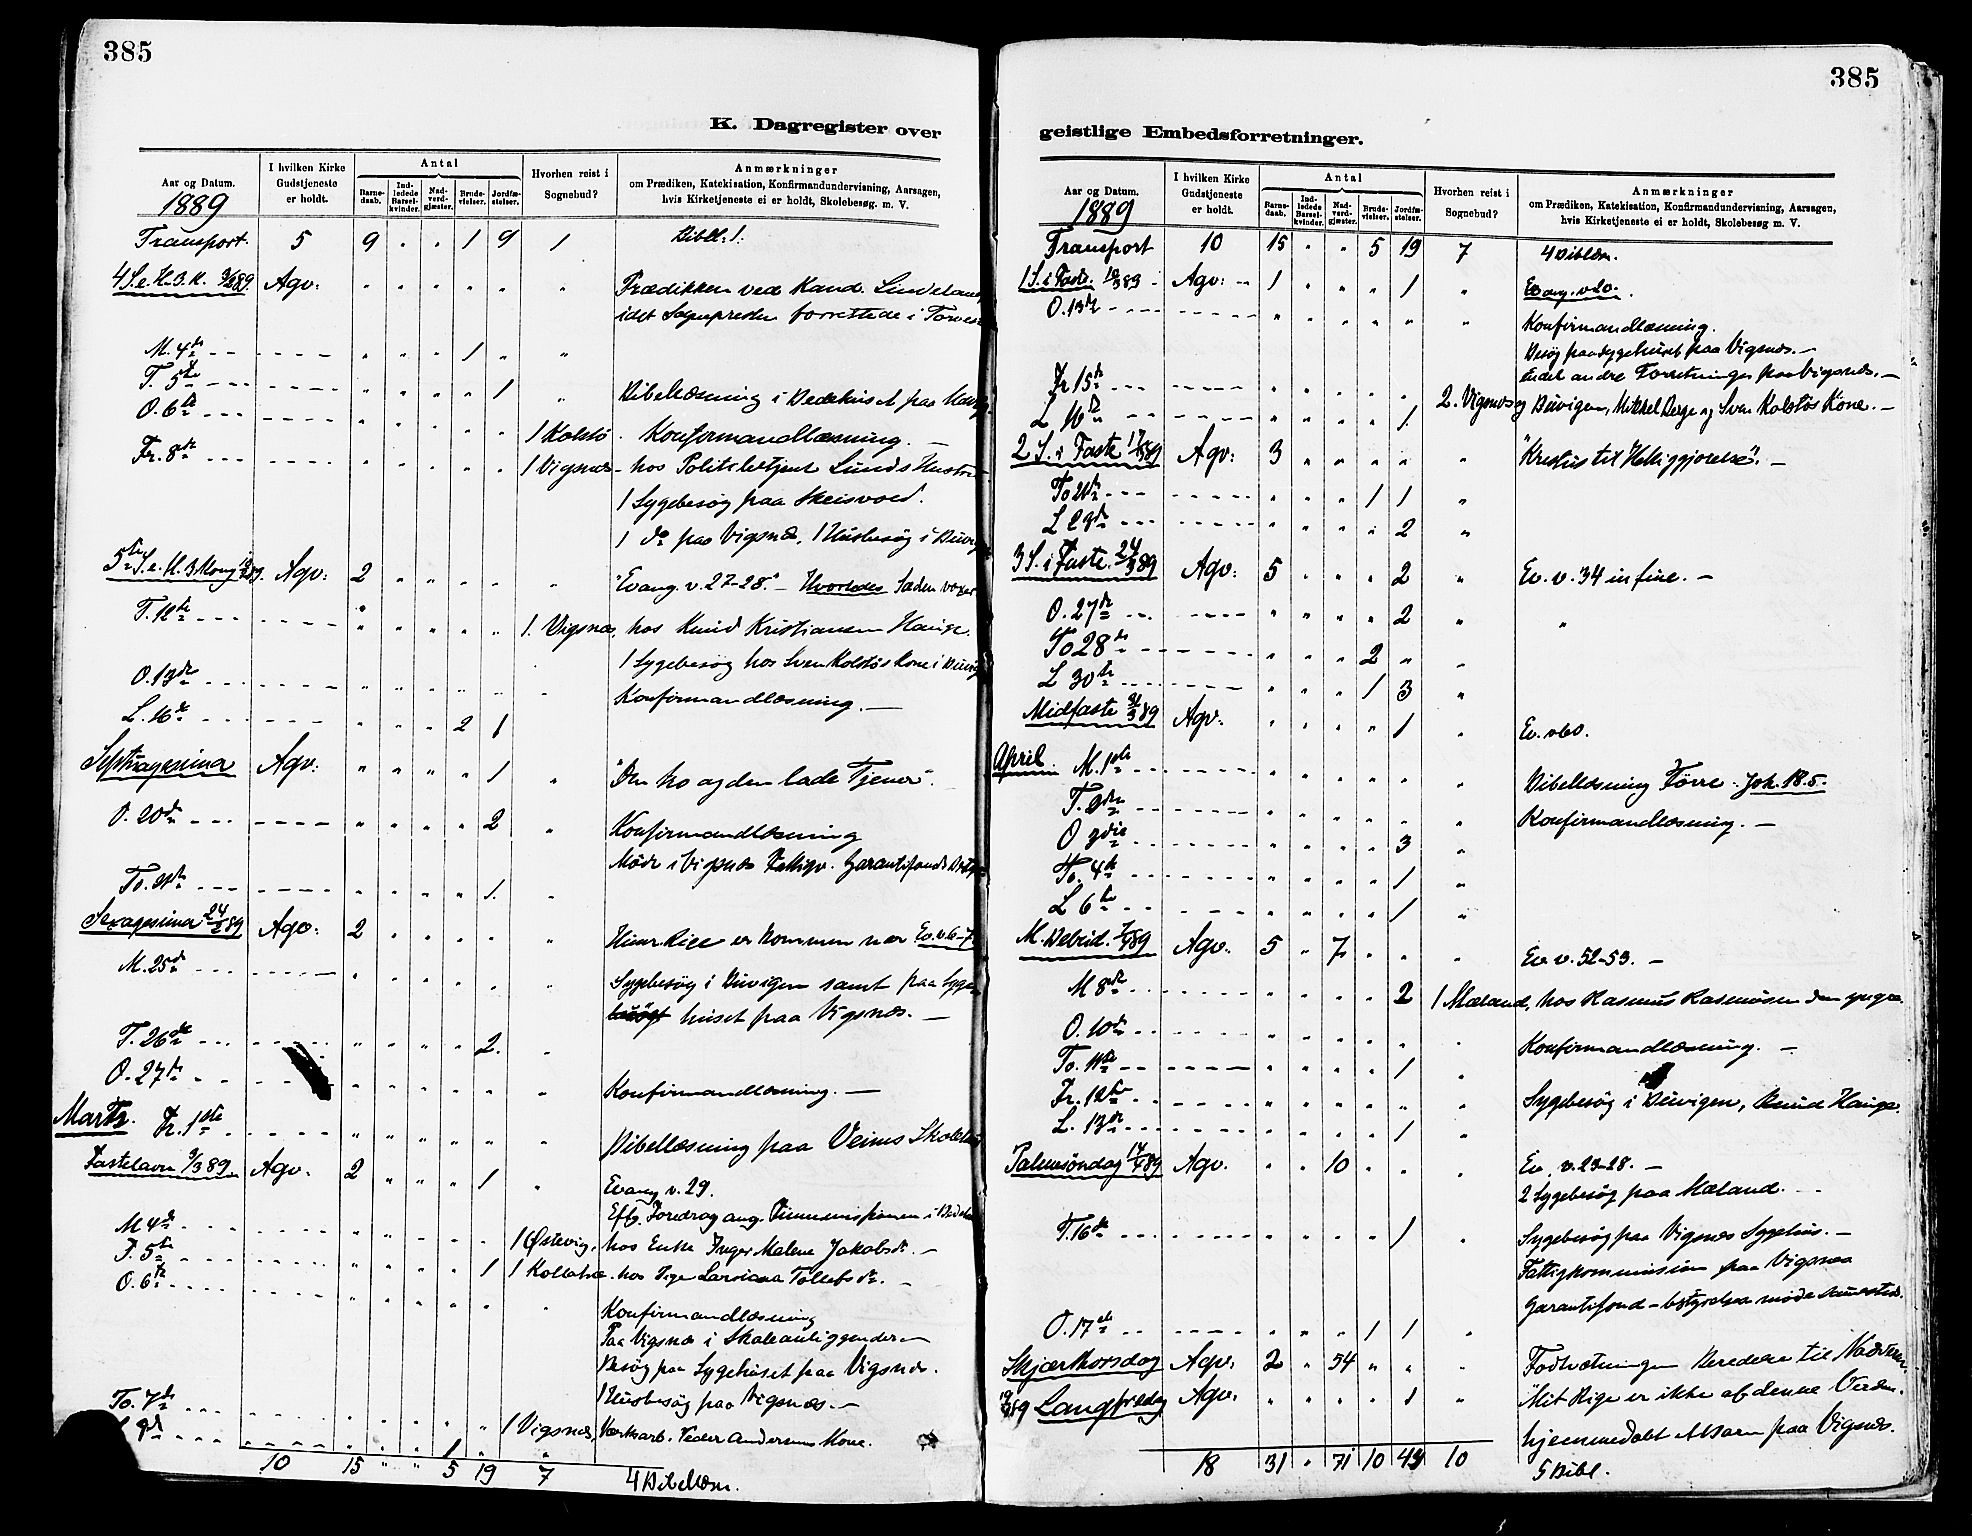 385
K. Dagregister over
Aar og Datum. 1889 | I hvilken Kirke Gudstjeneste er holdt. | Antal | Barnedaab. | Indledede Barselkvinder. | Nadverdgjæster. | Brudevielser. | Jordfæstelser. | Hvorhen reist i Sognebud? | Anmærkninger om Prædiken, Katekisation, Konfirmandundervisning, Aarsagen, hvis Kirketjeneste ei er holdt, Skolebesøg. m. V.
Transport. 5 9 " " 1 9 1 Bibell: 1.
4 S. e. H. 3. K. 3/2 89 Agv: " " " " " " Prædikken ved Kand.
idet Sognepresten forrettede i
M. 4de " " " 1 " "
T. 5te " " " " 1 " Bibellæsning i Bedehuset paa
O. 6te " " " " " 1 Kolstö. Konfirmandlæsning. —
Fr. 8de " " " " " 1 Vigsnæs - hos Politibetjent Lunds Hustru
1 Sygebesøg paa Skeisvold.
1 do paa Vigsnæs, 1 Husbesøg i
5te S. e. H. 3 10/2 89. Agv: 2 " " " " " "Evang. v. 27-28." — Hvorledes Sæden voxer
T. 12te " " " " " 1. Vigsnæs, hos Knud Kristiansen Hauge.
1 Sygebesøg hos Sven Kolstös Kone i
O. 13de " " " " " " Konfirmandlæsning. —
L. 16de " " " 2 1
Septuagesima Agv: " " " " 1 " "Den tro og den lade Tjener".
O. 20de " " " " 2 " Konfirmandlæsning
Møde i Vigsnæs Fattigv. Garantifonds
To. 21de " " " " 1. "
Sexagesima 24/2 89 Agv: 2 " " " " " Himr. Rige er kommen nær Ev. v. 6-7
M. 25de " " " " " " Sygebesøg i Duvigen samt paa Syge
huset paa Vigsnæs. —
T. 26de " " " " 2. "
O. 27de " " " " " " Konfirmandlæsning. —
Marts. Fr. 1ste " " " " " " Bibellæsning paa Skole
Fastelavn 3/3 89. Agv. 2 " " " 1 " Evang v. 29.
Eft. Foredrag ang. i
M 4de " " " " " 1 Østevig, hos Enke Inger Malene Jakobsdr. —
T. 5te " " " " 1 1 hos Pige Tollefsdr. —
O. 6te " " " " " " Konfirmandlæsning
Paa Vigsnæs i Skoleanliggender —
Besøg paa Sygehuset paa Vigsnæs.
1 Husbesøg paa Vigsnæs. —
To. 7de " " " " " 1 Vigsnæs, Peder Andersens Kone.
9de " " " 1 " "
10 15 " " 5 19 7 4 Bibellæsn.
385
geistlige Embedsforretninger.
Aar og Datum. 1889 | I hvilken Kirke Gudstjeneste er holdt. | Antal | Barnedaab. | Indledede Barselkvinder. | Nadverdgjæster. | Brudevielser. | Jordfæstelser. | Hvorhen reist i Sognebud? | Anmærkninger om Prædiken, Katekisation, Konfirmandundervisning, Aarsagen, hvis Kirketjeneste ei er holdt, Skolebesøg. m. V.
Transport 10 15 " " 5 19 7 4 Biblæsn.
1 S. i Faste. 10/3 89 Agv: 1 " " " 1 " Evang. v. 20.
O. 13de " " " " " " Konfirmandlæsning.
Besøg paa Sygehuset paa Vigsnæs. —
Endel andre Forretninger paa Vigsnæs. —
Fr 15de " " " " " 2. Vigsnæs og Duvigen, Mikkel Berge og Sven Kolstös Kone. —
L 16de " " " " 1.
2 S. i Faste 17/3 89 Agv: 3 " " " " " "Kristus til Helliggjørelse". —
To 21de " " " 1 1 "
L 23de " " " " 2 "
3 S. i Faste. 24/3 89 Agv: 5 " " " 2 " Ev. v. 34 in fine. —
O. 27de " " " " 2 " "
To 28de " " " 2 " "
L 30te " " " 1 3 "
Midfaste 31/3 89 Agv: " " " " 1 " Ev. v 60.
April. M. 1ste " " " " " " Bibellæsning Førre. Joh. 18. 5.
T. 2den " " " " " " Konfirmandlæsning. —
O 3die " " " " 3 "
To. 4de " " " " 1 "
L 6te " " " " 1 "
M. Bebud. 7/4 89 Agv. 5 " 7 " " " Ev v. 52-53. —
M 8de " " " " 2 1 Mæland, hos Rasmus Rasmusen den yngre.
O. 10de " " " " " " Konfirmandlæsning. —
To. 11te " " " " 1 "
Fr. 12te " " " " " " Sygebesøg i Duvigen, Knud Hauge.
L. 13de " " " " 1 "
Palmesöndag 14/4 89 Agv. " " 10 " " " Ev. v. 23-28. —
2 Sygebesøg paa Mæland. —
T. 16de " " " " 1 " Sygebesøg paa Vigsnæs Sygehus. —
Fattigkommission paa Vigsnæs
Garantifond - bestyrelses møde sammesteds.
O. 17de " " " 1 1 "
Skjærthorsdag Agv. 2 " 54 " " " Fodtvætningen Beredelse til
19/4 89 Langfredag Agv. " " " " 1 " "Mit Rige er ikke af denne Verden.
hjemmedøbt Barn paa Vigsnæs.
18 31 " 71 10 43 10 5 Bibl.